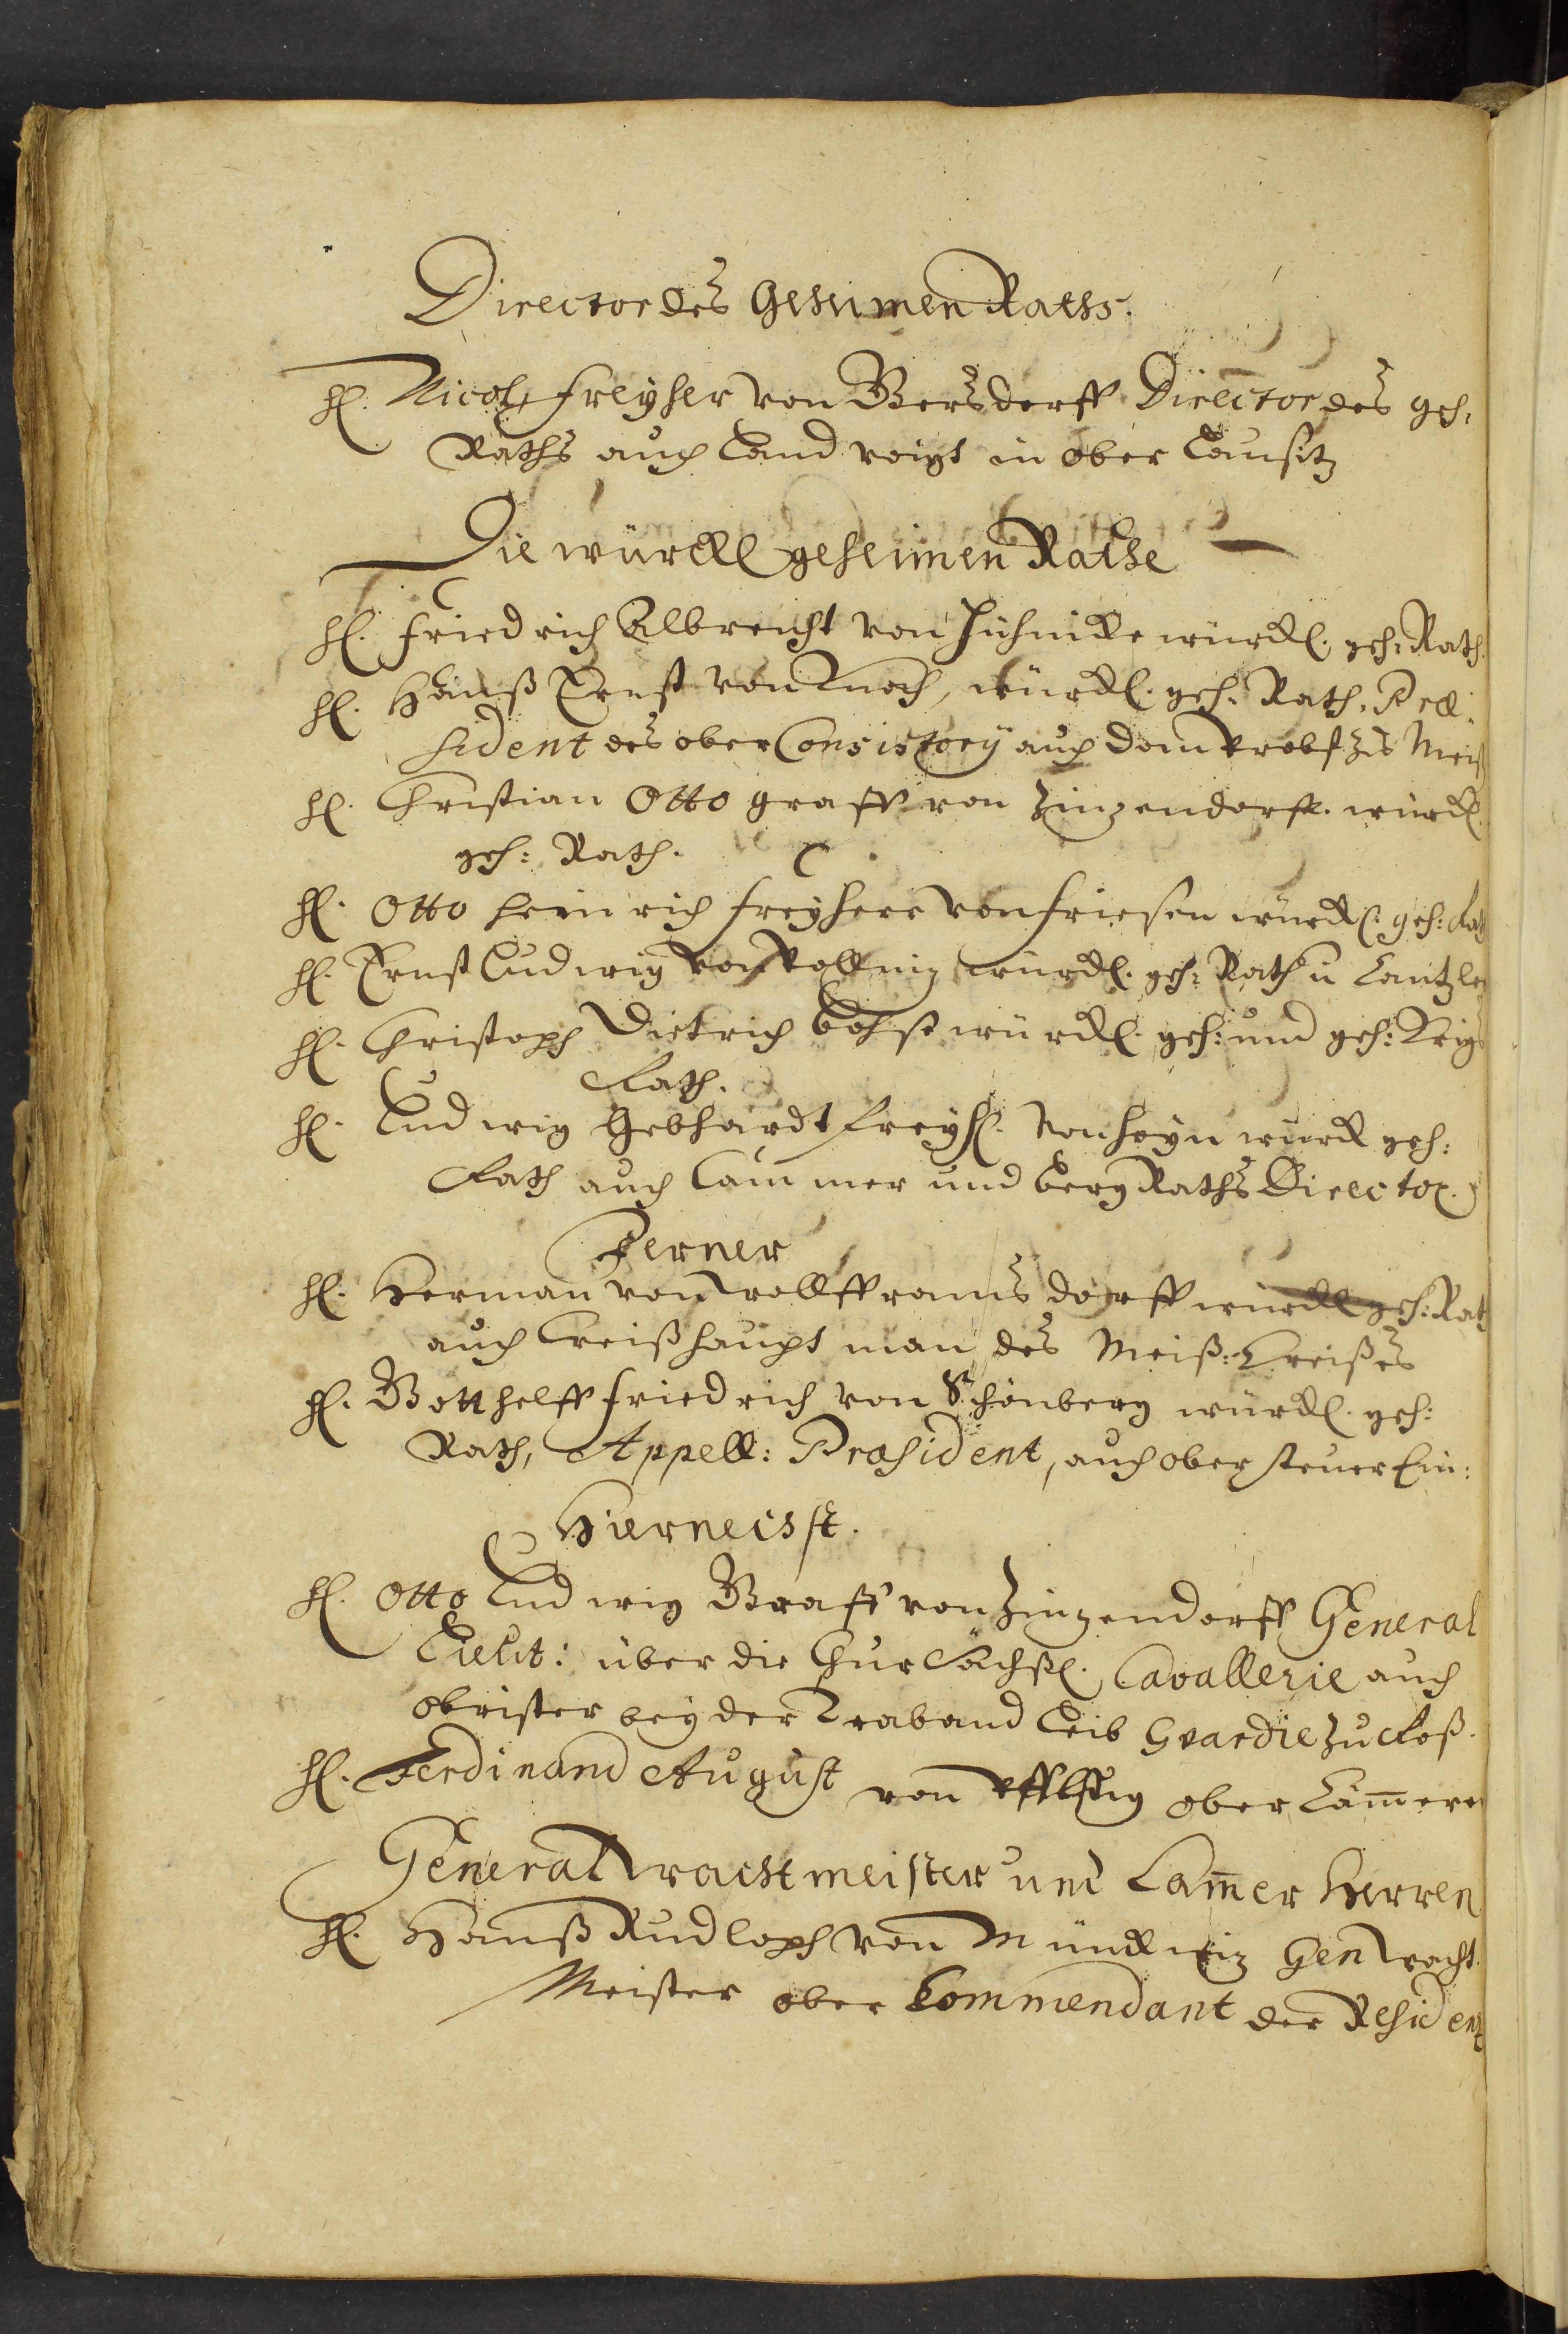 Director des Geheimen Raths.
H. Nicol, Freyher von Gersdorff Director des geh:
Raths auch Land voigt in ober Lausitz
Die würckl geheimen Räthe
H. Friedrich Albrecht von Hühnicke würckl. geh: Rath.
H. Hanß Ernst von Knoch, würckl. geh. Rath, Præ:
sident des ober Consistory auch Dom Probst zu Meiß
H. Christian Otto graff von Zinzendorff. würckl.
geh: Rath.
H. Otto Heinrich Freyherr von Friesen würckl. geh: Rath
H. Ernst Ludwig von Pöllniz würckl. geh: Rath u Cantzler
H. Christoph Dietrich Bohse würckl. geh: und geh: Krigs
Rath.
H. Ludwig Gebhardt Freyh. von Hoym würck geh:
Rath auch Cammer und Berg Raths Director.
Ferner
H. Herman von Wolfframsdorff würckl geh: Rath
auch Creißhauptman des Meiß: Creißes
H. Gotthelff Friedrich von Schönberg würckl. geh:
Rath, Appell: Præsident, auch ober steuer Ein:
Hiernechst.
H. Otto Ludwig Graff von Zinzendorff General
Lieut: über die Chur Sächß. Cavallerie auch
Obrister bey der Traband Leib Gvardie zu Roß.
H. Ferdinand August von Pfflug ober Cämerer
General wachtmeister und Camer Herren
H. Hanß Rudloph von Minckwiz Gen Wacht
Meister ober Commendant der Resident